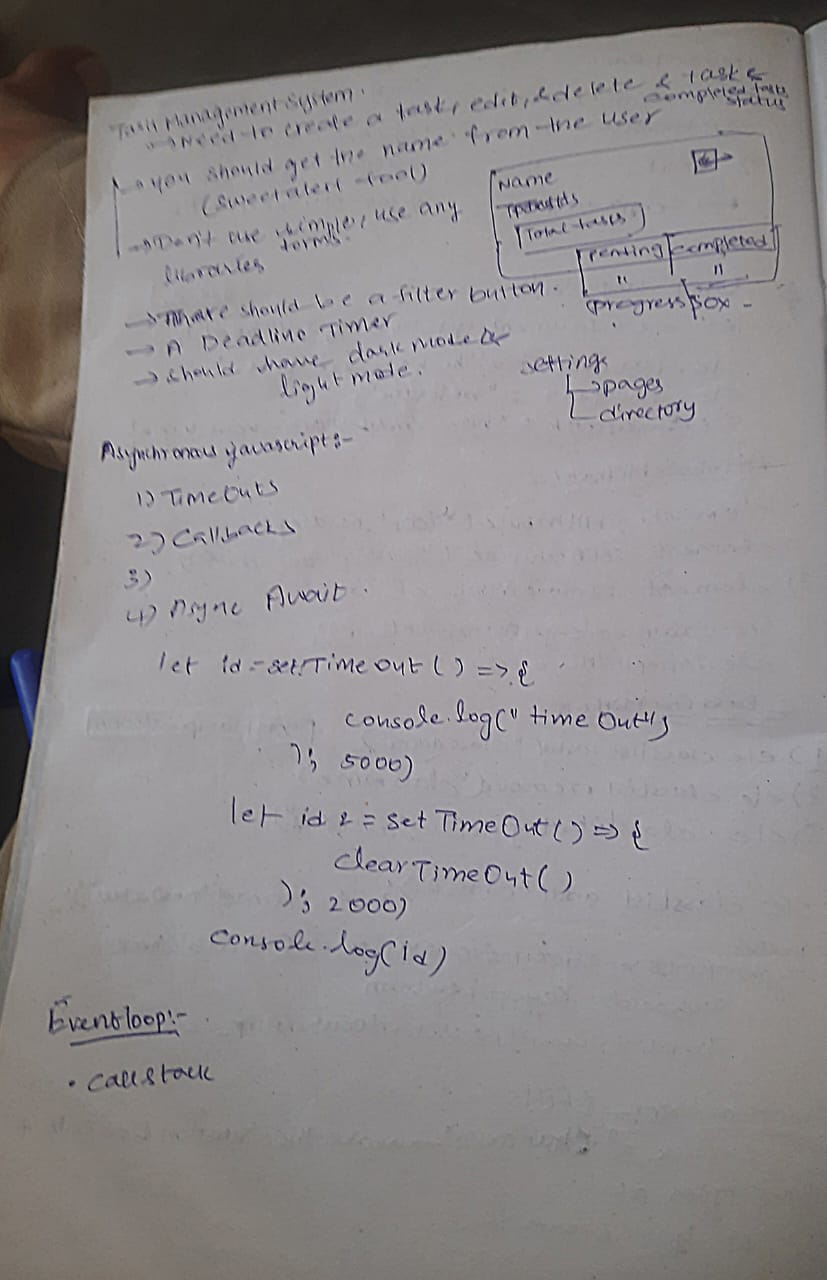 Task Management System.
→ Need to create a task, edit, & delete & task &
completed task
status
→ you should get the name from the user
(sweetalert tool)
→ Don't use simple, use any
forms.
libraries
Name
Total tasks
pending completed
" "
progress box -
→ There should be a filter button.
→ A Deadline Timer
→ should have dark mode &
light mode.
settings
→ pages
directory
Asynchronous javascript :-
1) Timeouts
2) Callbacks
3)
4) Async Await.
let id = setTimeout () => {
console.log(" time Out");
); 5000)
let id 2 = set TimeOut () => {
clear TimeOut ( )
); 2000)
console.log(id)
Event loop:-
• call stack